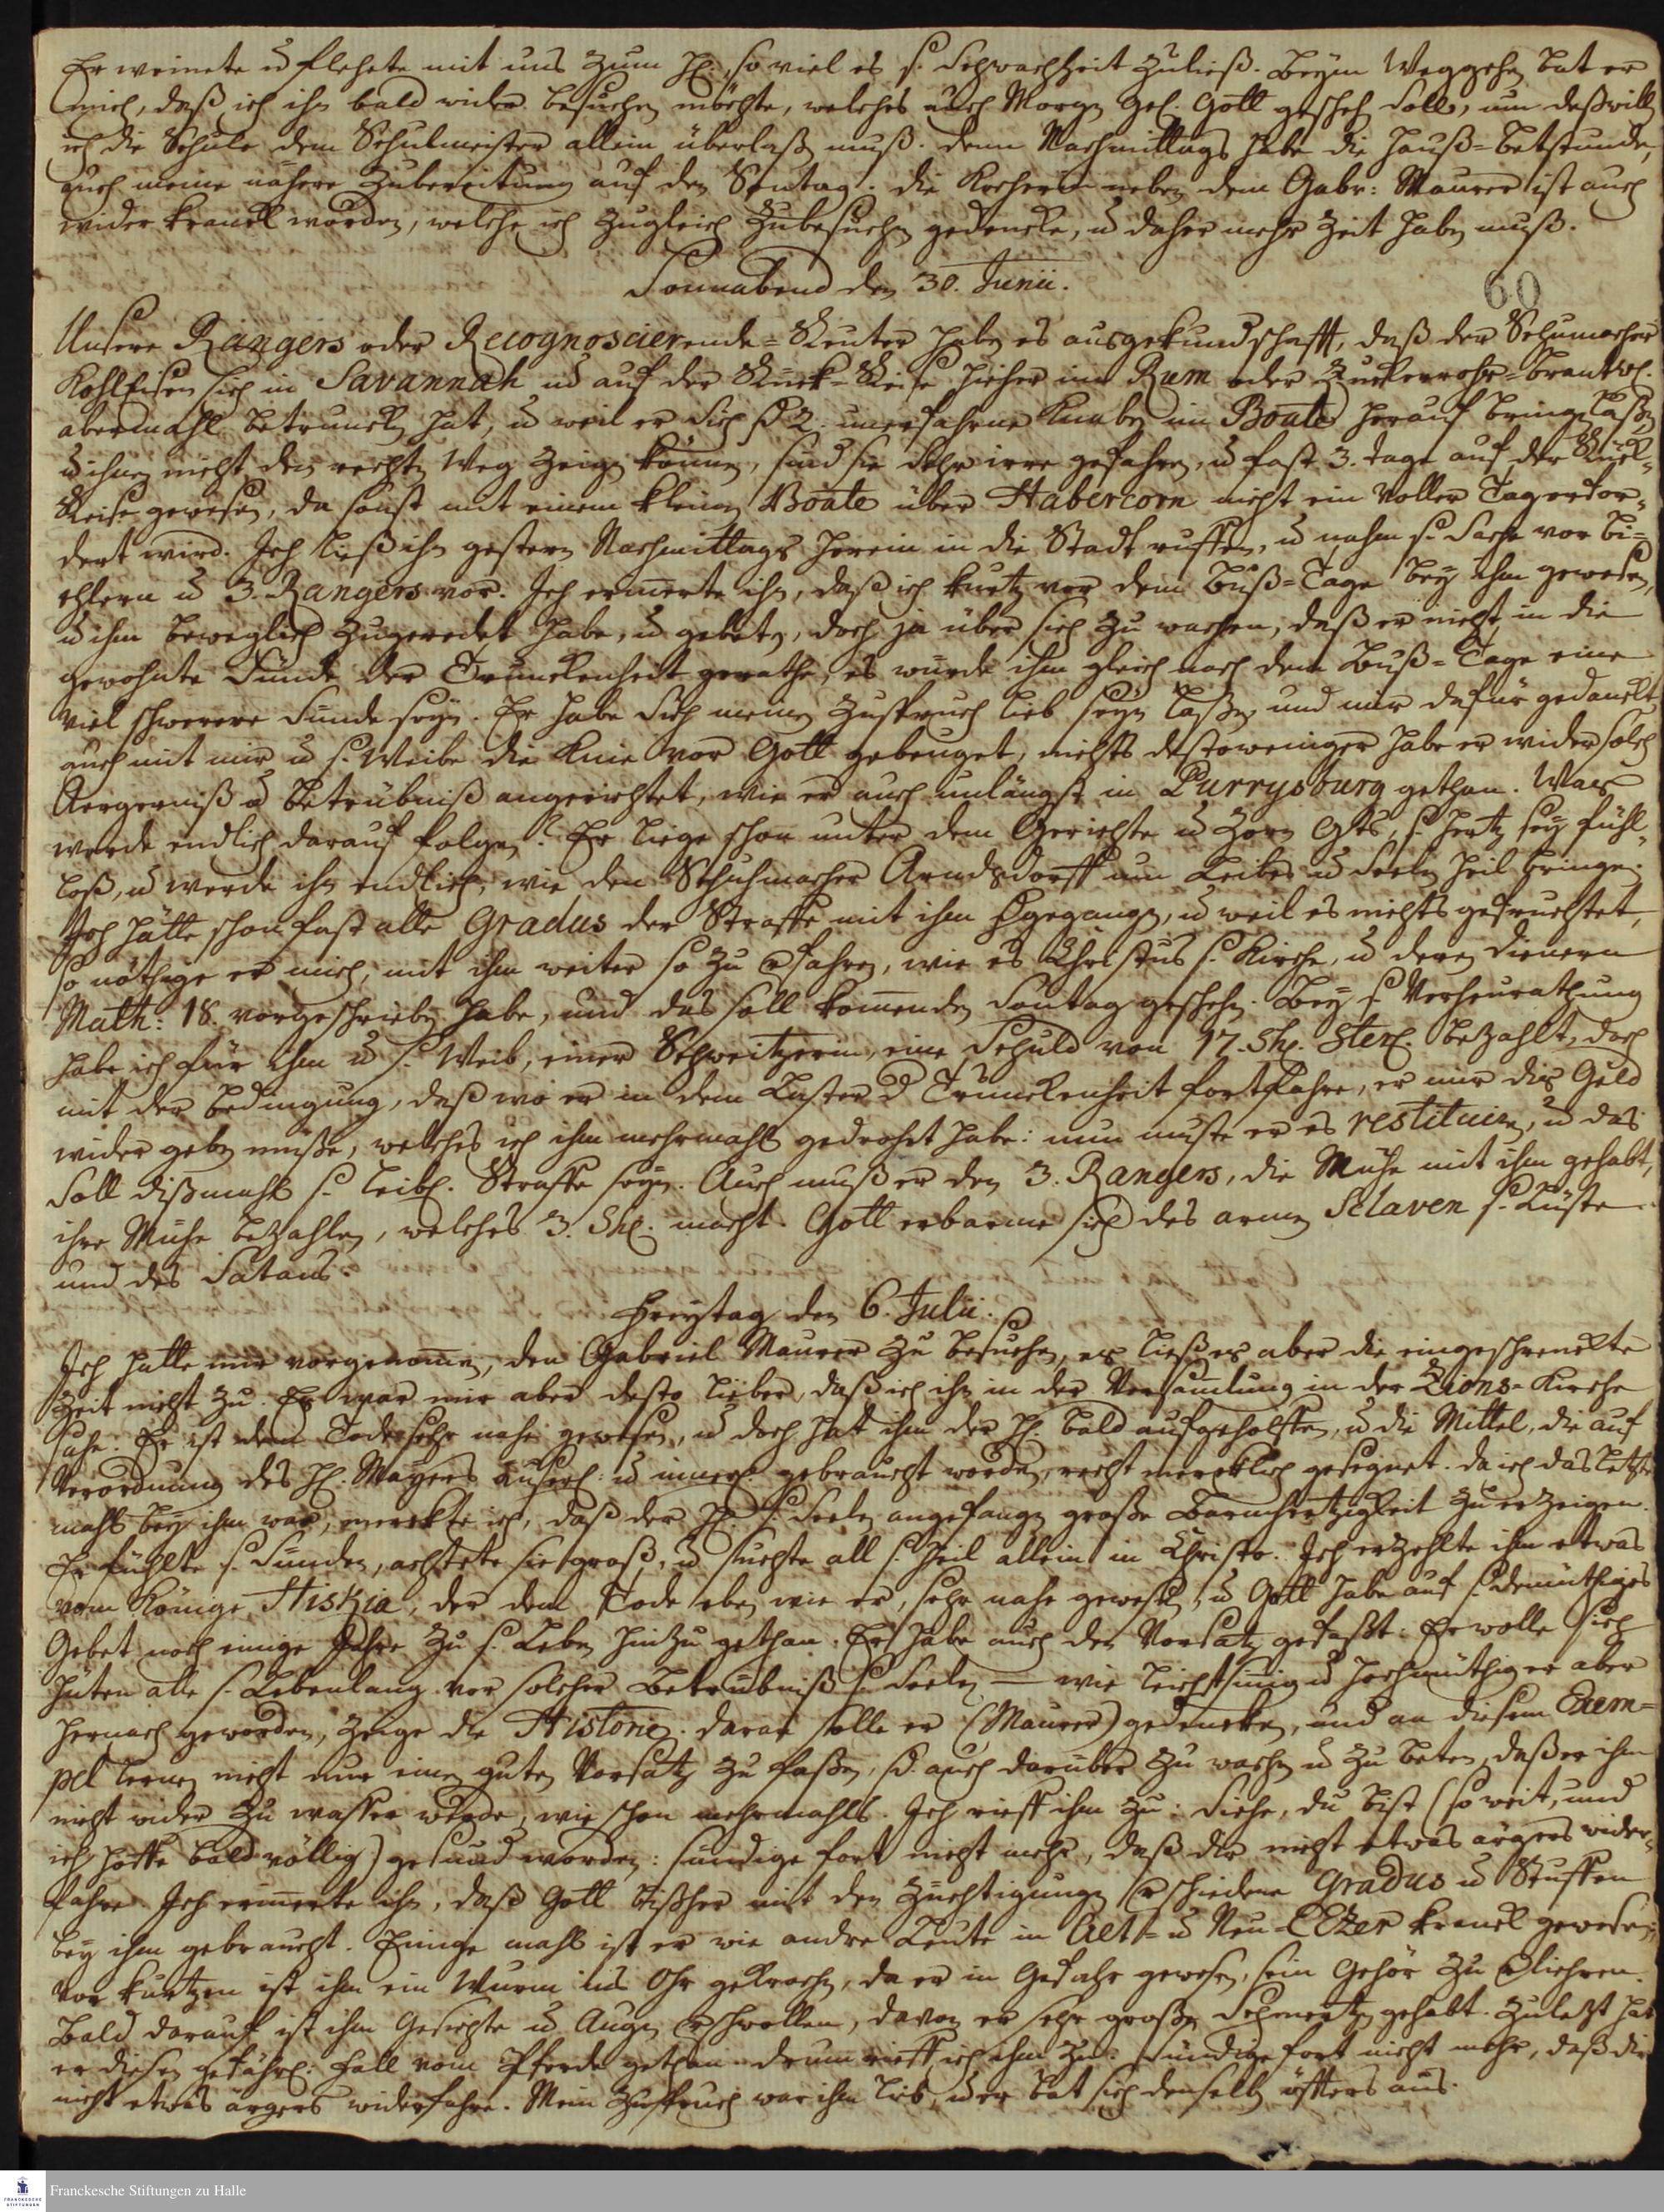 Er weinete u. flehete mit uns zum H., so viel es s. Schwachheit zuließ. Beym Weggehen bat er
mich, daß ich ihn bald wider besuchen möchte, welches auch Morgen gel. Gott geschehen soll, um deßwillen
ich die Schule dem Schulmeister allein überlaßen muß. denn Nachmittags habe die Hauß-betstunde,
auch meine nähere Zubereitung auf den Sontag. die Kocherin neben dem Gabr: Maurer ist auch
wider kranck worden, welche ich zugleich zubesuchen gedencke, u. daher mehr Zeit haben muß.
Sonnabend den 30. Junii.
60
Unsere Rangers oder Recognoscierende-Reuter haben es ausgekundschafft, daß der Schumacher
Kohleisen sich in Savannah u. auf der Rück-Reise hieher im Rum oder Zuckerrohr-brantw.
abermahl betruncken hat, u. weil er sich 2. unerfahrne Knaben im Boate herauf bringen laßen,
u. ihnen nicht den rechten Weg zeigen können, sind sie sehr irre gefahren, u. fast 3. tage auf der Rück-
Reise gewesen, da sonst mit einem kleinen Boate über Habercorn nicht ein voller Tag erfor-
dert wird. Ich ließ ihn gestern Nachmittags herein in die Stadt ruffen, u. nahm s. Sache vor Bi-
chlern u. 3. Rangers vor. Ich erinnerte ihn, daß ich kurtz vor dem Buß-Tage bey ihm gewesen,
u. ihm beweglich zugeredet habe, u. gebeten, doch ja über sich zu wachen, daß er nicht in die
gewohnte Sünde der Trunckenheit gerathe, es würde ihm gleich nach dem Buß-Tage eine
viel schwerere Sünde seyn. Er habe sich meinen Zuspruch lieb seyn laßen, und mir dafür gedanckt,
auch mit mir u. s. Weibe die Knie vor Gott gebeuget, nichts destoweniger habe er wider solch
Aergerniß u. Betrübniß angerichtet, wie er auch unlängst in Purrysburg gethan. Was
werde endlich darauf folgen? Er liege schon unter dem Gerichte u. Zorn Gtes, s. Hertz sey fühl-
loß, u. werde ihn endlich, wie den Schuhmacher Arndsdorff um Leibes u. Seelen Heil bringen.
Ich hätte schon fast alle Gradus der Straffe mit ihm gegangen, u. weil es nichts gefruchtet,
so nöthige er mich, mit ihm weiter so zu verfahren, wie es Christus s. Kirche, u. deren Dienern
Math: 18. vorgeschrieben habe, und das soll kommenden Sontag geschehen. Bey s. Verheurathung
habe ich für ihn u. s. Weib, einer Schweitzerin, eine Schuld von 17. Sh. Sterl. bezahlt, doch
mit der Bedingung, daß wo er in dem Laster d. Trunckenheit fortfahre, er mir das Geld
wider geben müße, welches ich ihm mehrmahls gedrohet habe: nun muste er es restituiren, u. das
soll dißmahl s. leibl. Straffe seyn. Auch muß er den 3. Rangers, die Mühe mit ihm gehabt,
ihre Mühe bezahlen, welches 3. Sh. macht. Gott erbarme sich des armen Sclaven s. Lüste
und des Satans.
Freytag den 6. Julii.
Ich hatte mir vorgenommen, den Gabriel Maurer zu besuchen, es ließ es aber die eingeschrenckte
Zeit nicht zu. Es war mir aber desto lieber, daß ich ihn in der Versammlung in der Zions-Kirche
sahe. Er ist dem Tode sehr nahe gewesen, u. doch hat ihm der H. bald aufgeholffen, u. die Mittel, die auf
Verordnung des H. Mayers äuserl: u. innerl. gebraucht worden, recht mercklich gesegnet. da ich das letzte
mahl bey ihm war, merckte ich, daß der H. s. Seelen angefangen große Barmhertzigkeit zu erzeigen.
Er fühlte s. Sünden, achtete sie groß, u. suchte all s. Heil allein in Christo. Ich erzehlte ihm etwas
vom Könige Hiskia, der dem Tode eben wie er, sehr nahe gewesen, u. Gott habe auf s. demüthiges
Gebet noch einige Jahre zu s. Leben hinzu gethan. Er habe auch den Vorsatz gefaßt: Er wolle sich
hüten alle s. Lebenlang vor solcher Betrübniß s. Seelen — wie leichtsinnig u. hochmüthig er aber
hernach geworden, zeige die Historie. daran solle er (Maurer) gedencken, und an diesem Exem-
pel lernen nicht nur einen guten Vorsatz zu faßen, s. auch darüber zu wachen u. zu beten, daß er ihm
nicht wider zu wasser werde, wie schon mehrmahls. Ich rieff ihm zu: Siehe, du bist (so weit, und
ich hoffe bald völlig) gesund worden: sündige fort nicht mehr, daß dir nicht etwas ärgers wider-
fahre. Ich erinnerte ihn, daß Gott bißher mit den Züchtigungen verschiedene Gradus u. Stuffen
bey ihm gebraucht. Einige mahl ist er wie andre Leute in Alt- u. Neu-Ebzer kranck gewesen;
vor kurtzem ist ihm ein Wurm ins Ohr gekrochen, da er in Gefahr gewesen, sein Gehör zu verliehren.
Bald darauf ist ihm Gesichte u. Augen verschwollen, davon er sehr großen Schmertz gehabt. Zuletzt hat
er diesen gefährl: Fall vom Pferde gethan. drum rieff ich ihm zu: Sündige fort nicht mehr, daß dir
nicht etwas ärgers widerfahre. Mein Zuspruch war ihm lieb, u. er bat sich denselben öffters aus.
FRANCKESCHE STIFTUNGEN
Franckesche Stiftungen zu Halle